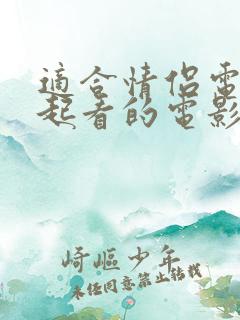 適合情侶電
起看的電影
崎嶇少年
未经同意禁止转载